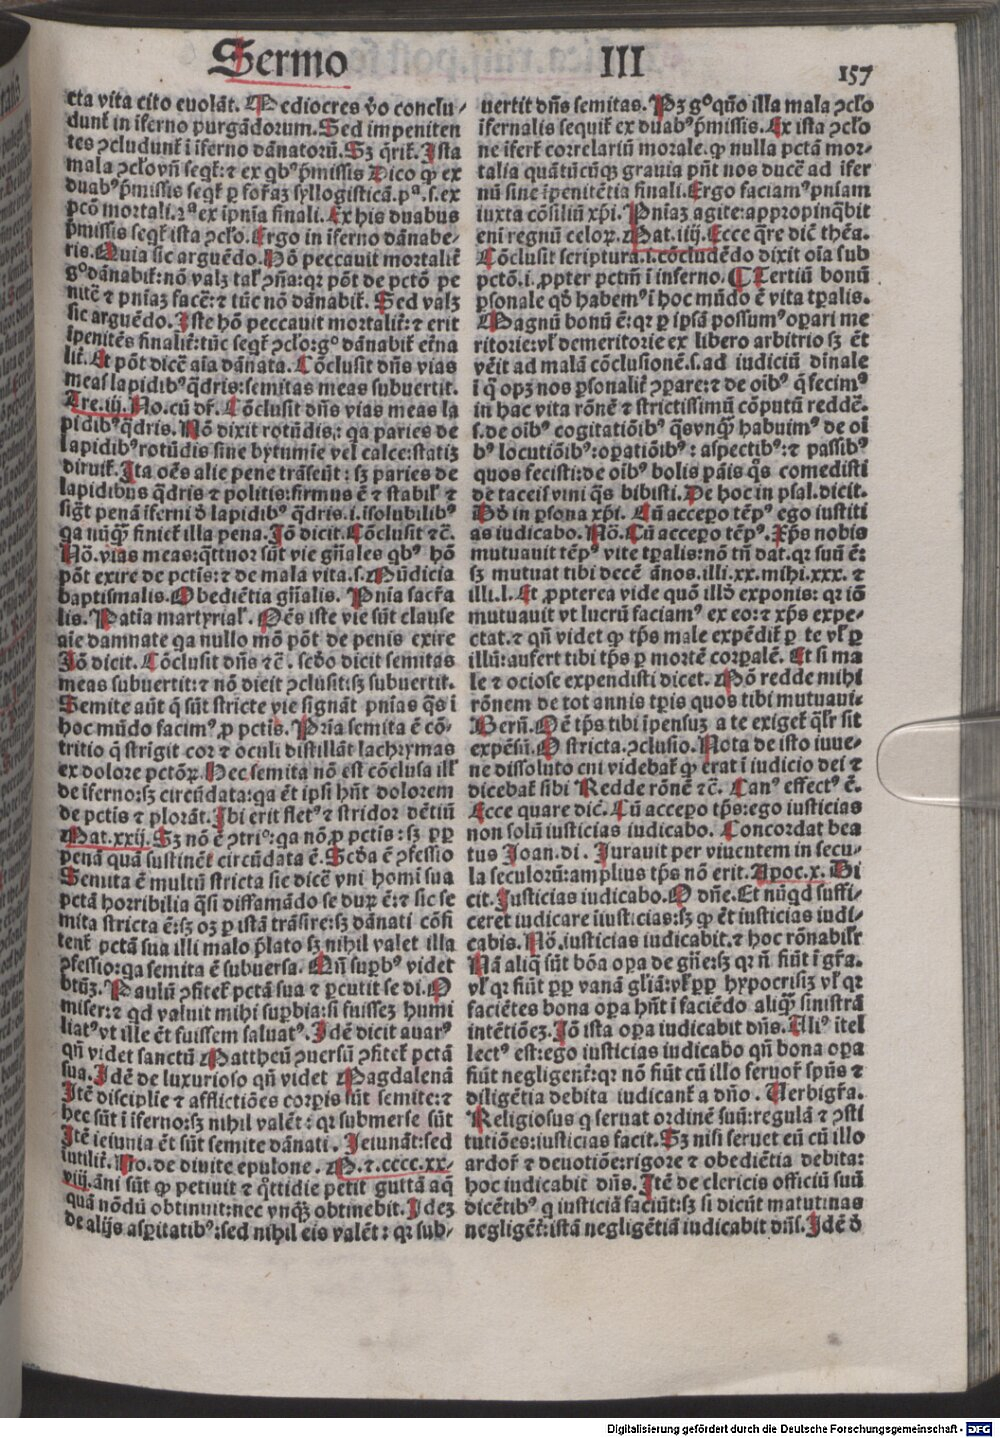 Sermo III 157
cta vita cito euolāt. Mediocres v̄o conclu-
dunt̄ in īferno purgādorum. Sed impeniten
tes ꝯcludunt̄ ī īferno dānatorū. Sꝫ q̄rit̄. Ista
mala ꝯcło seqt̄: ⁊ ex qb⁹ p̄missis Dico ꝙ ex
duab⁹ p̄missis seqt̄ ꝑ formaꝫ syllogisticā. pᵃ. s. ex
pctō mortali. 2ᵃ ex īpnīa finali. Ex his duabus
p̄missis seqt̄ ista ꝯcło. Ergo in īferno dānabe-
ris. Quia sic arguēdo. Hō peccauit mortalit̄
gº dānabit̄: nō valꝫ talꝭ ꝯ̄na: qꝛ pōt de pctō pe
nitē ⁊ pnīaꝫ facē: ⁊ tūc nō dānabit̄. Sed valꝫ
sic arguēdo. Iste hō peccauit mortalit̄: ⁊ erit
īpenitēs finalit̄: tūc seqt̄ ꝯcło: gº dānabit̄ et̄na
lit̄. Et pōt dicē aīa dānata. Cōclusit dn̄s vias
meas lapidib⁹ q̄dris: semitas meas subuertit.
Tre. iij. No. cū dr̄. Cōclusit dn̄s vias meas la
pidib⁹ q̄dris. Nō dixit rotūdis: qa paries de
lapidib⁹ rotūdis sine bytumie vel calce: statiꝫ
diruit̄. Ita oēs alie pene trāseūt: sꝫ paries de
lapidibus q̄dris ⁊ politis: firmus ē ⁊ stabil̄ ⁊
sigt̄ penā īferni d̄ lapidib⁹ q̄dris. i. īsolubilib⁹
qa nūꝗ̄ finiet̄ illa pena. Iō dicit. Cōclusit ⁊c̄.
Nō. vias meas: q̄ttuor sūt vie gn̄ales qb⁹ hō
pōt exire de pctis: ⁊ de mala vita. s. Mūdicia
baptismalis. Obediētia gn̄alis. Pnīa sacr̄a
lis. Patīa martyrial̄. Oēs iste vie sūt clause
aīe damnate qa nullo mō pōt de penis exire
Iō dicit. Cōclusit dn̄s ⁊c̄. scd̄o dicit semitas
meas subuertit: ⁊ nō dicit ꝯclusit: sꝫ subuertit.
Semite aūt q̄ sūt stricte vie signāt pnīas q̄s ī
hoc mūdo facim⁹ ꝓ pctis. Prīa semita ē cō-
tritio q̄ strigit cor ⁊ oculi distillāt lachrymas
ex dolore pctōꝝ. Hec semita nō est cōclusa ill̄
de īferno: sꝫ circūdata: qa ēt ipsi hn̄t dolorem
de pctis ⁊ plorāt. Ibi erit flet⁹ ⁊ stridor dētiū
Mat. xxij. Sꝫ nō ē ꝯtriº: qa nō ꝓ pctis: sꝫ ꝓp̄
penā quā sustinēt circūdata ē. Scd̄a ē ꝯfessio
Semita ē multū stricta sic dicē vni homī sua
pctā horribilia q̄si diffamādo se duꝝ ē: ⁊ sic se
mita stricta ē: sꝫ oꝫ ꝑ istā trāsire: sꝫ dānati cōfi
tent̄ pctā sua illi malo p̄lato sꝫ nihil valet illa
ꝯfessio: qa semita ē subuersa. Qn̄ suꝑb⁹ videt
btūꝫ. Paulū ꝯfitet̄ pctā sua ⁊ ꝑcutit se di. O
miser: ⁊ qd valuit mihi suꝑbia: si fuisseꝫ humi
liat⁹ vt ille ēt fuissem saluat⁹. Idē dicit auar⁹
qn̄ videt sanctū Mattheū ꝯuersū ꝯfitet̄ pctā
sua. Idē de luxurioso qn̄ videt Magdalenā
Itē disciplie ⁊ afflictiōes corꝑis sūt semite: ⁊
hec sūt ī īferno: sꝫ nihil valēt: qꝛ submerse sūt
Itē ieiunia ēt sūt semite dānati. Ieiunāt: sed
iutilit̄. Pro. de diuite epulone. M. ⁊. cccc. xx-
viij. āni sūt ꝙ petiuit ⁊ q̄ttidie petit guttā aq̄
quā nōdū obtinuit: nec vnꝗ̄ obtinebit. Ideꝫ
de alijs asꝑitatib⁹: sed nihil eis valēt: qꝛ sub-
uertit dn̄s semitas. Pꝫ gº qūo illa mala ꝯcło
īfernalis sequit̄ ex duab⁹ p̄missis. Ex ista ꝯcło
ne īfert̄ correlariū morale. ꝙ nulla pctā mor-
talia quātūcūqꝫ grauia pn̄t nos ducē ad īfer
nū sine īpenitētia finali. Ergo faciam⁹ pnīam
iuxta cōsiliū xp̄i. Pnīaꝫ agite: appropinq̄bit
enī regnū celoꝝ. Mat. iiij. Ecce q̄re dic̄ thēa.
Cōclusit scriptura. i. cōcludēdo dixit oīa sub
pctō. i. ꝓpter pctm̄ ī inferno. ¶ Tertiū bonū
ꝑsonale qd̄ habem⁹ ī hoc mūdo ē vita tꝑalis.
Magnū bonū ē: qꝛ ꝑ ipsā possum⁹ oꝑari me
ritorie: vl̄ demeritorie ex libero arbitrio sꝫ ēt
vēit ad malā cōclusionē. s. ad iudiciū diīnale
ī q̄ opꝫ nos ꝑsonalit̄ ꝯparē: ⁊ de oīb⁹ q̄ fecim⁹
in hac vita rōnē ⁊ strictissimū cōputū reddē.
s. de oīb⁹ cogitatiōib⁹ q̄s vnꝗ̄ habuim⁹ de oī
b⁹ locutiōib⁹: oꝑatiōib⁹: aspectib⁹: ⁊ passib⁹
quos fecisti: de oīb⁹ bolis pāis q̄s comedisti
de taceis vini q̄s bibisti. De hoc in psal. dicit.
Dd̄ in ꝑsona xp̄i. Cū acceꝑo tēp⁹ ego iustiti
as iudicabo. Nō. Cū acceꝑo tēp⁹. Xp̄s nobis
mutuauit tēp⁹ vite tꝑalis: nō tn̄ dat. qꝛ suū ē:
sꝫ mutuat tibi decē ānos. illi. xx. mihi. xxx. ⁊
illi. l. Et ꝓpterea vide quō illd̄ exponis: qꝛ iō
mutuauit vt lucrū faciam⁹ ex eo: ⁊ xp̄s expe-
ctat. ⁊ qn̄ videt ꝙ tp̄s male expēdit̄ ꝑ te vl̄ ꝑ
illū: aufert tibi tp̄s ꝑ mortē corꝑalē. Et si ma
le ⁊ ociose expendisti dicet. Mō redde mihi
rōnem de tot annis tꝑis quos tibi mutuaui.
Bern. Oē tp̄s tibi īpensuꝫ a te exiget̄ qlr̄ sit
expēsū. O stricta. ꝯclusio. Nota de isto iuue-
ne dissoluto cui videbat̄ ꝙ erat ī iudicio dei ⁊
dicebat̄ sibi Redde rōnē ⁊c̄. Can⁹ effect⁹ ē.
Ecce quare dic̄. Cū acceꝑo tp̄s: ego iusticias
non solū iusticias iudicabo. Concordat bea
tus Joan. di. Iurauit per viuentem in secu-
la seculorū: amplius tp̄s nō erit. Apoc. x. Di
cit. Iusticias iudicabo. O dn̄e. Et nūqd suffi-
ceret iudicare iīusticias: sꝫ ꝙ ēt iusticias iudi-
cabis. Nō. iusticias iudicabit. ⁊ hoc rōnabilr̄
Nā aliq̄ sūt bōa oꝑa de gn̄e: sꝫ qꝛ n̄ fiūt ī gr̄a.
vl̄ qꝛ fiūt ꝓp̄ vanā gliā: vl̄ ꝓp̄ hypocrisiꝫ vl̄ qꝛ
faciētes bona oꝑa hn̄t ī faciēdo aliq̄ sinistrā
intētiōeꝫ. Iō ista oꝑa iudicabit dn̄s. Ali⁹ ītel
lect⁹ est: ego iusticias iudicabo qn̄ bona oꝑa
fiūt negligent̄: qꝛ nō fiūt cū illo feruor̄ spūs ⁊
diligētia debita iudicant̄ a dn̄o. Uerbigr̄a.
Religiosus q seruat ordinē suū: regulā ⁊ ꝯsti
tutiōes: iusticias facit. Sꝫ nisi seruet eū cū illo
ardor̄ ⁊ deuotiōe: rigore ⁊ obediētia debita:
hoc iudicabit dn̄s. Itē de clericis officiū suū
dicētib⁹ q iusticiā faciūt: sꝫ si dicūt matutinas
negligēt̄: istā negligētiā iudicabit dn̄s. Idē d̄
Digitalisierung gefördert durch die Deutsche Forschungsgemeinschaft - DFG